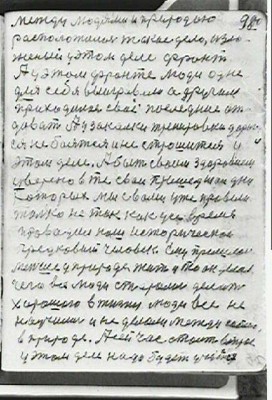 98
между людьми и природою
расположился такое дело, и ло-
женый у этом деле фронт
А у этом фронте люди одне
для себя выиграли а другим
приходится своё последнее от
давать А у закалки тренировки
ся не боятся и не строится и
этом деле. А быть своим здоровьем
уверено в те свои прошедшия дни
которые мы с вами уже провели
только не так как усё время
проводил наш исторической
человек ему
у природе жить и то он делал
чего все люди старалися делать
хорошого в жизни люди все не
научились и не делают между собою
в природе. А сейчас стоит вопрос
у этом деле надо будет учится